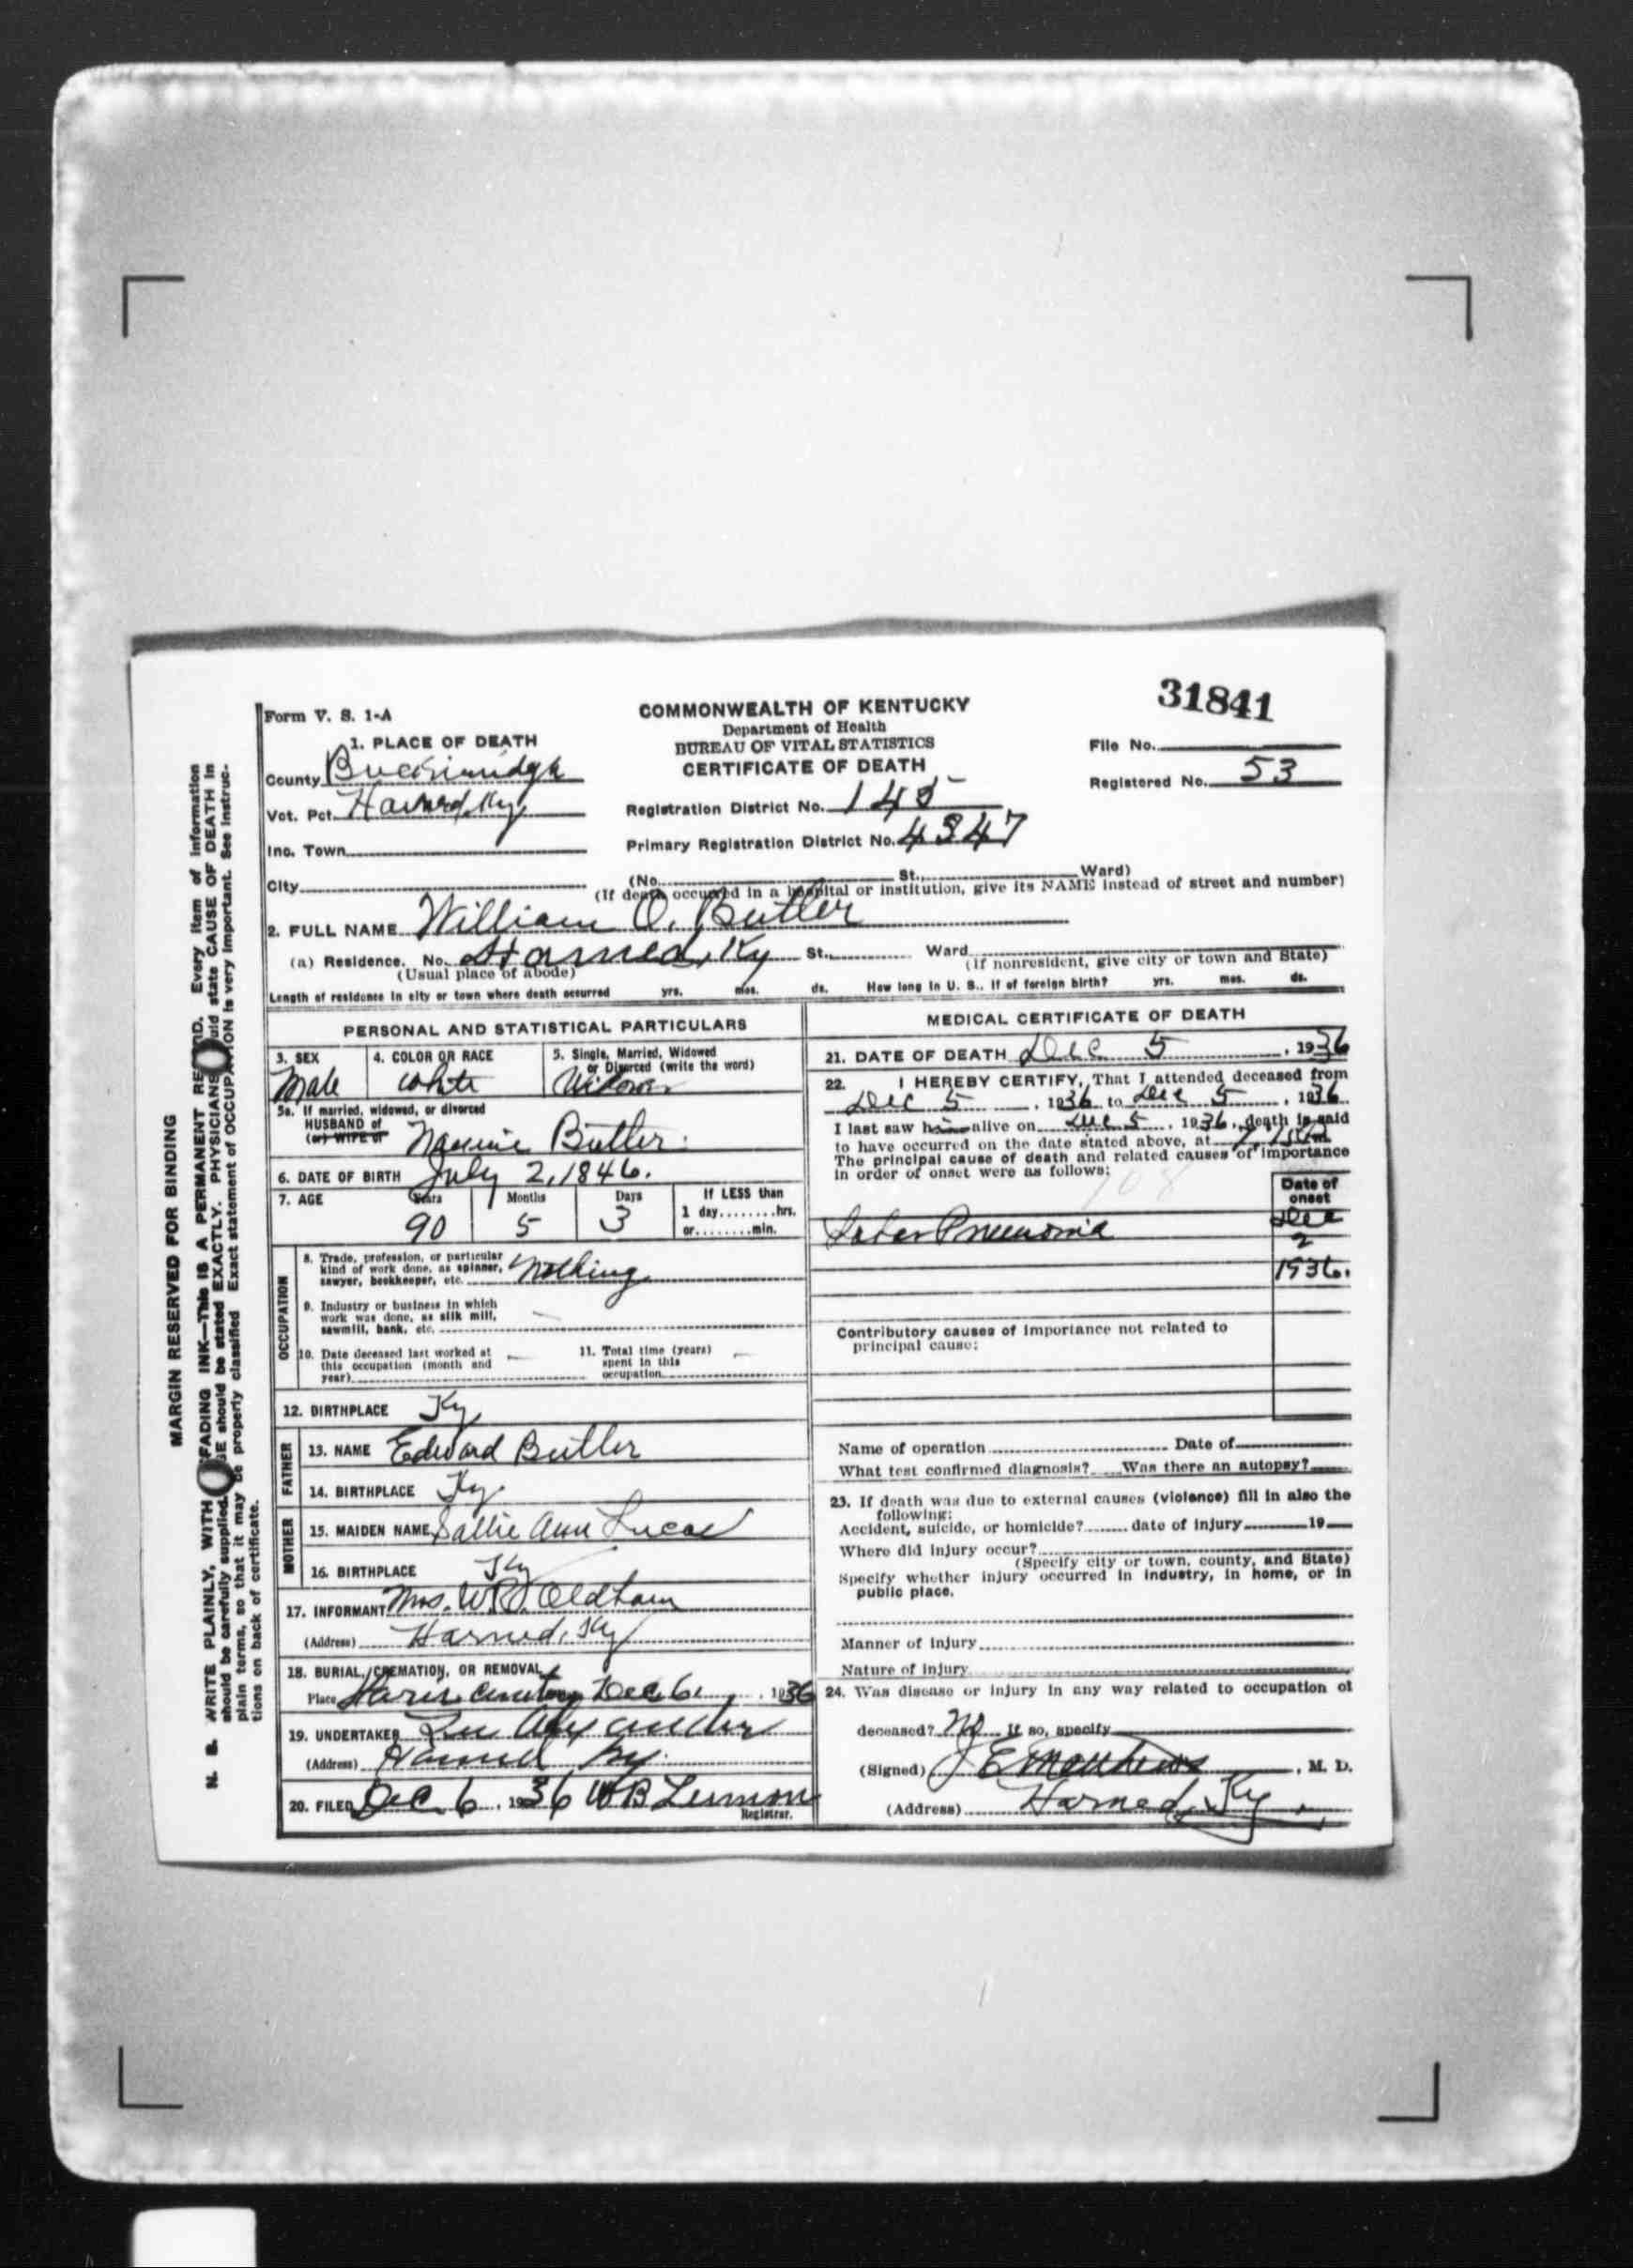 31841
Form V. S. 1-A
COMMONWEALTH OF KENTUCKY
Department of Health
BUREAU OF VITAL STATISTICS
CERTIFICATE OF DEATH
File No.
Registered No. 53
1. PLACE OF DEATH
County
Vot. Pct. Harned, Ky.
Inc. Town
City
Registration District No. 145
Primary Registration District No. 4347
(No. St., Ward)
(If death occurred in a hospital or institution, give its NAME instead of street and number)
2. FULL NAME William O. Butler
(a) Residence. No. Harned, Ky St., Ward
(Usual place of abode) (If nonresident, give city or town and State)
Length of residence in city or town where death occurred yrs. mos. ds. How long in U. S., if of foreign birth? yrs. mos. ds.
PERSONAL AND STATISTICAL PARTICULARS
3. SEX
Male
4. COLOR OR RACE
White
5. Single, Married, Widowed
or Divorced (write the word)
Widower
5a. If married, widowed, or divorced
HUSBAND of
(or) WIFE of
Butler
6. DATE OF BIRTH July 2, 1846.
7. AGE Years Months Days If LESS than
1 day hrs.
or min.
90 5 3
OCCUPATION
8. Trade, profession, or particular
kind of work done, as spinner,
sawyer, bookkeeper, etc. Nothing
9. Industry or business in which
work was done, as silk mill,
sawmill, bank, etc.
10. Date deceased last worked at
this occupation (month and
year)
11. Total time (years)
spent in this
occupation
12. BIRTHPLACE Ky
FATHER
13. NAME Edward Butler
14. BIRTHPLACE Ky.
MOTHER
15. MAIDEN NAME Sallie Ann Lucas
16. BIRTHPLACE Ky
17. INFORMANT Mrs. Oldham
(Address) Harned, Ky
18. BURIAL, CREMATION, OR REMOVAL
Place Dec 6, 1936
19. UNDERTAKER Alexander
(Address) Harned Ky.
20. FILED Dec. 6, 1936 W B Lennon
Registrar.
MEDICAL CERTIFICATE OF DEATH
21. DATE OF DEATH Dec 5, 1936
22. I HEREBY CERTIFY, That I attended deceased from
Dec 5, 1936 to Dec 5, 1936
I last saw him alive on Dec 5, 1936, death is said
to have occurred on the date stated above, at m
The principal cause of death and related causes of importance
in order of onset were as follows:
108
Date of
onset
Lobar Pneumonia Dec
2
1936.
Contributory causes of importance not related to
principal cause:
Name of operation Date of
What test confirmed diagnosis? Was there an autopsy?
23. If death was due to external causes (violence) fill in also the
following:
Accident, suicide, or homicide? date of injury 19
Where did injury occur?
(Specify city or town, county, and State)
Specify whether injury occurred in industry, in home, or in
public place.
Manner of injury
Nature of injury
24. Was disease or injury in any way related to occupation of
deceased? No If so, specify
(Signed) J E Matthews, M. D.
(Address) Harned, Ky.
MARGIN RESERVED FOR BINDING
N. B. WRITE PLAINLY, WITH UNFADING INK—This IS A PERMANENT RECORD. Every item of information
should be carefully supplied. AGE should be stated EXACTLY. PHYSICIANS should state CAUSE OF DEATH in
plain terms, so that it may be properly classified. Exact statement of OCCUPATION is very important. See instruc-
tions on back of certificate.